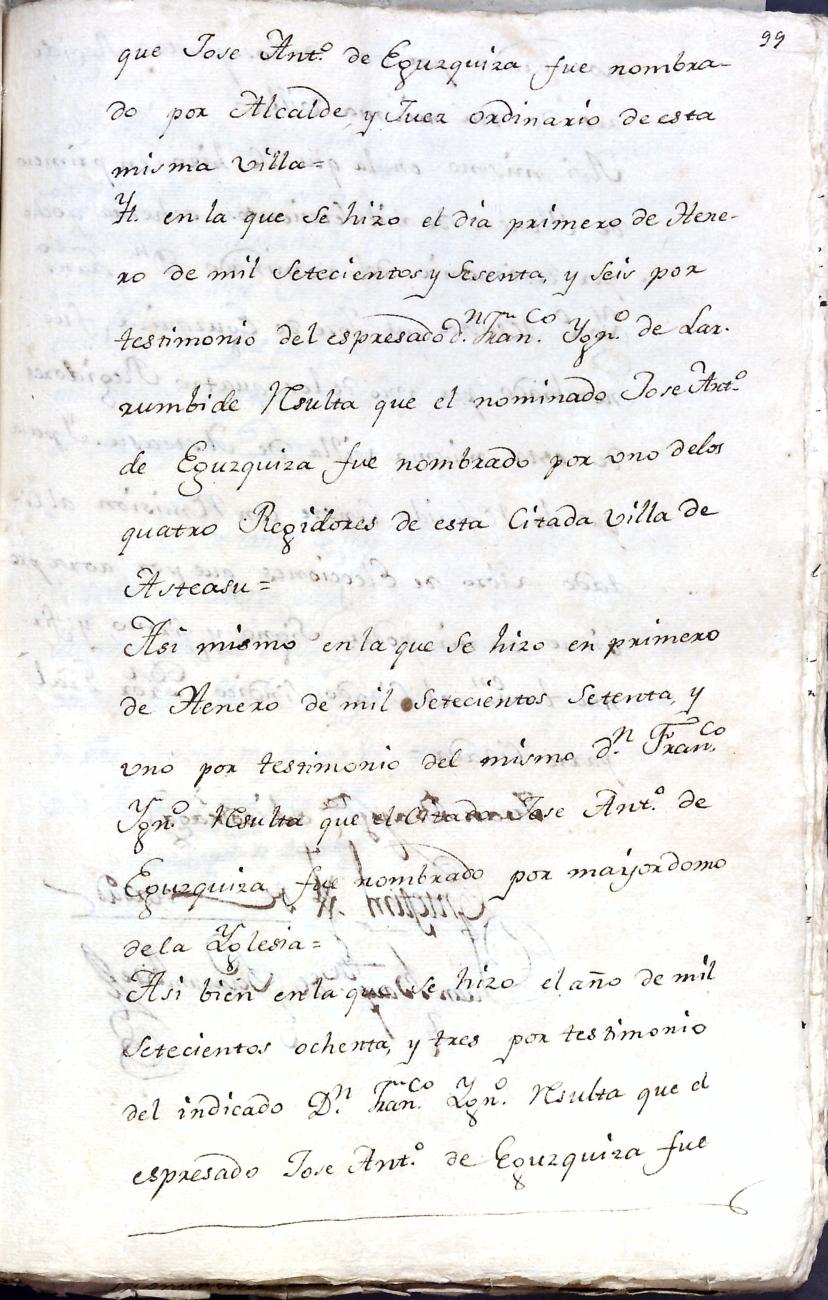 99
que Jose Ant.º de Egurquiza fue nombra-
do por Alcalde, y Juez ordinario de esta
misma villa=
Yt. en la que se hizo el dia primero de Hene-
ro de mil setecientos y sesenta, y seis por
testimonio del espresado d.n Fran.co Ygn.º de Lar-
rumbide Rsulta que el nominado Jose Ant.º
de Egurquiza fue nombrado por uno delos
quatro Regidores de esta Citada villa de
Asteasu=
Asi mismo en la que se hizo en primero
de Henero de mil setecientos setenta, y
uno por testimonio del mismo d.n Fran.co
Ygn.º Rsulta que el Citado Jose Ant.º de
Egurquiza fue nombrado por mayordomo
de la Yglesia=
Asi bien en la que se hizo el año de mil
setecientos ochenta, y tres por testimonio
del indicado D.n Fran.co Ygn.º Rsulta que el
espresado Jose Ant.º de Egurquiza fue